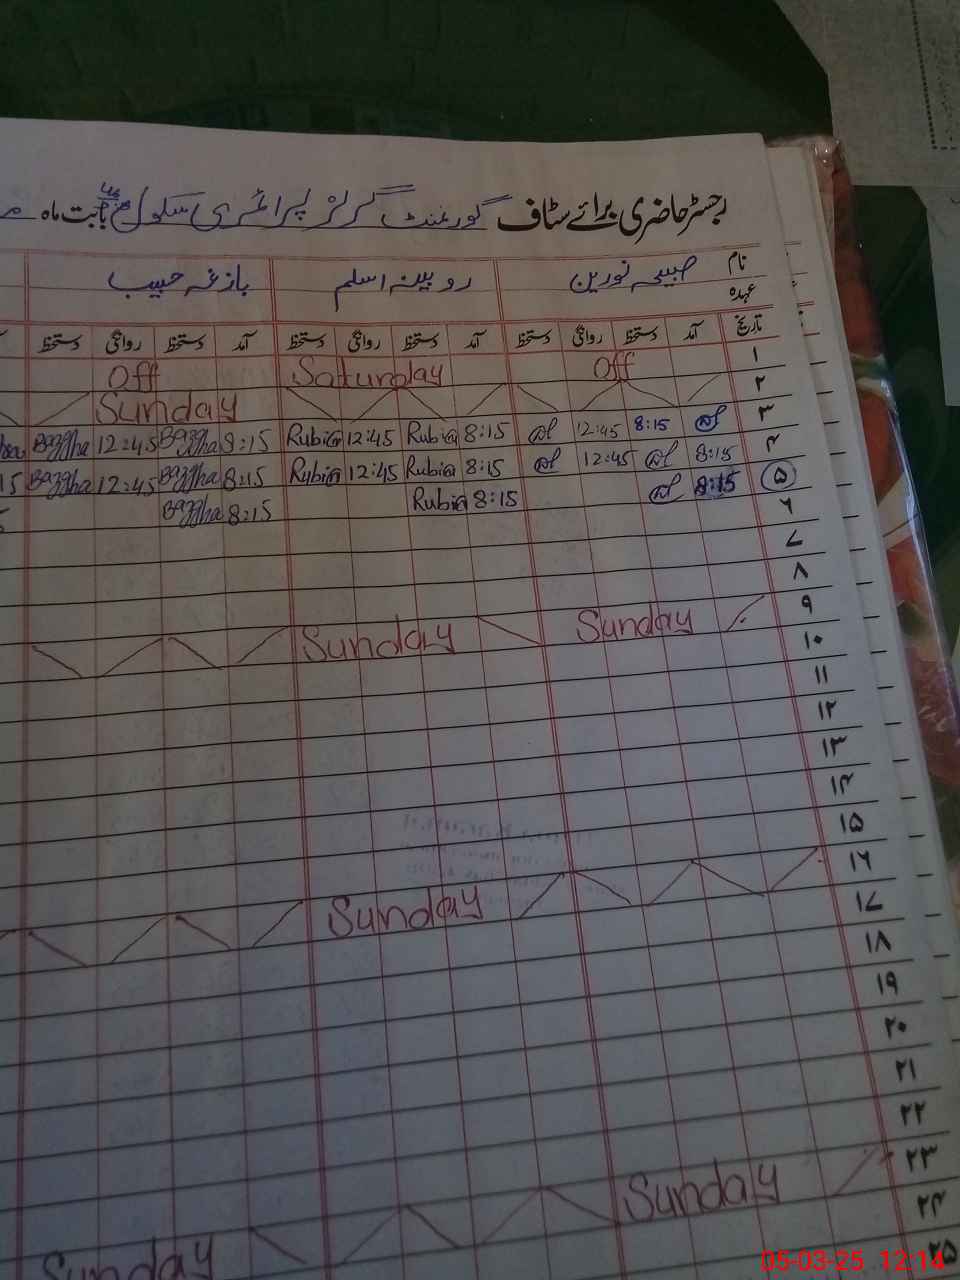 رجسٹر حاضری برائے سٹاف گورنمنٹ گرلز پرائمری سکول بابت ماہ
نام صبیحہ نورین روبینہ اسلم بازغہ حبیب
عہدہ
تاریخ آمد دستخط روانگی دستخط آمد دستخط روانگی دستخط آمد دستخط روانگی دستخط
۱ Off Saturday Off
۲ Sunday
۳ 8:15 12:45 8:15 Rubia 12:45 Rubia 8:15 Bazgha 12:45 Bazgha
۴ 8:15 12:45 8:15 Rubia 12:45 Rubia 8:15 Bazgha 12:45 Bazgha 15
۵ 8:15 8:15 Rubia 8:15 Bazgha
۶
۷
۸
۹ Sunday Sunday
۱۰
۱۱
۱۲
۱۳
۱۴
۱۵
۱۶ Sunday
۱۷
۱۸
۱۹
۲۰
۲۱
۲۲
۲۳ Sunday Sunday
۲۴
۲۵
05-03-25 12:14